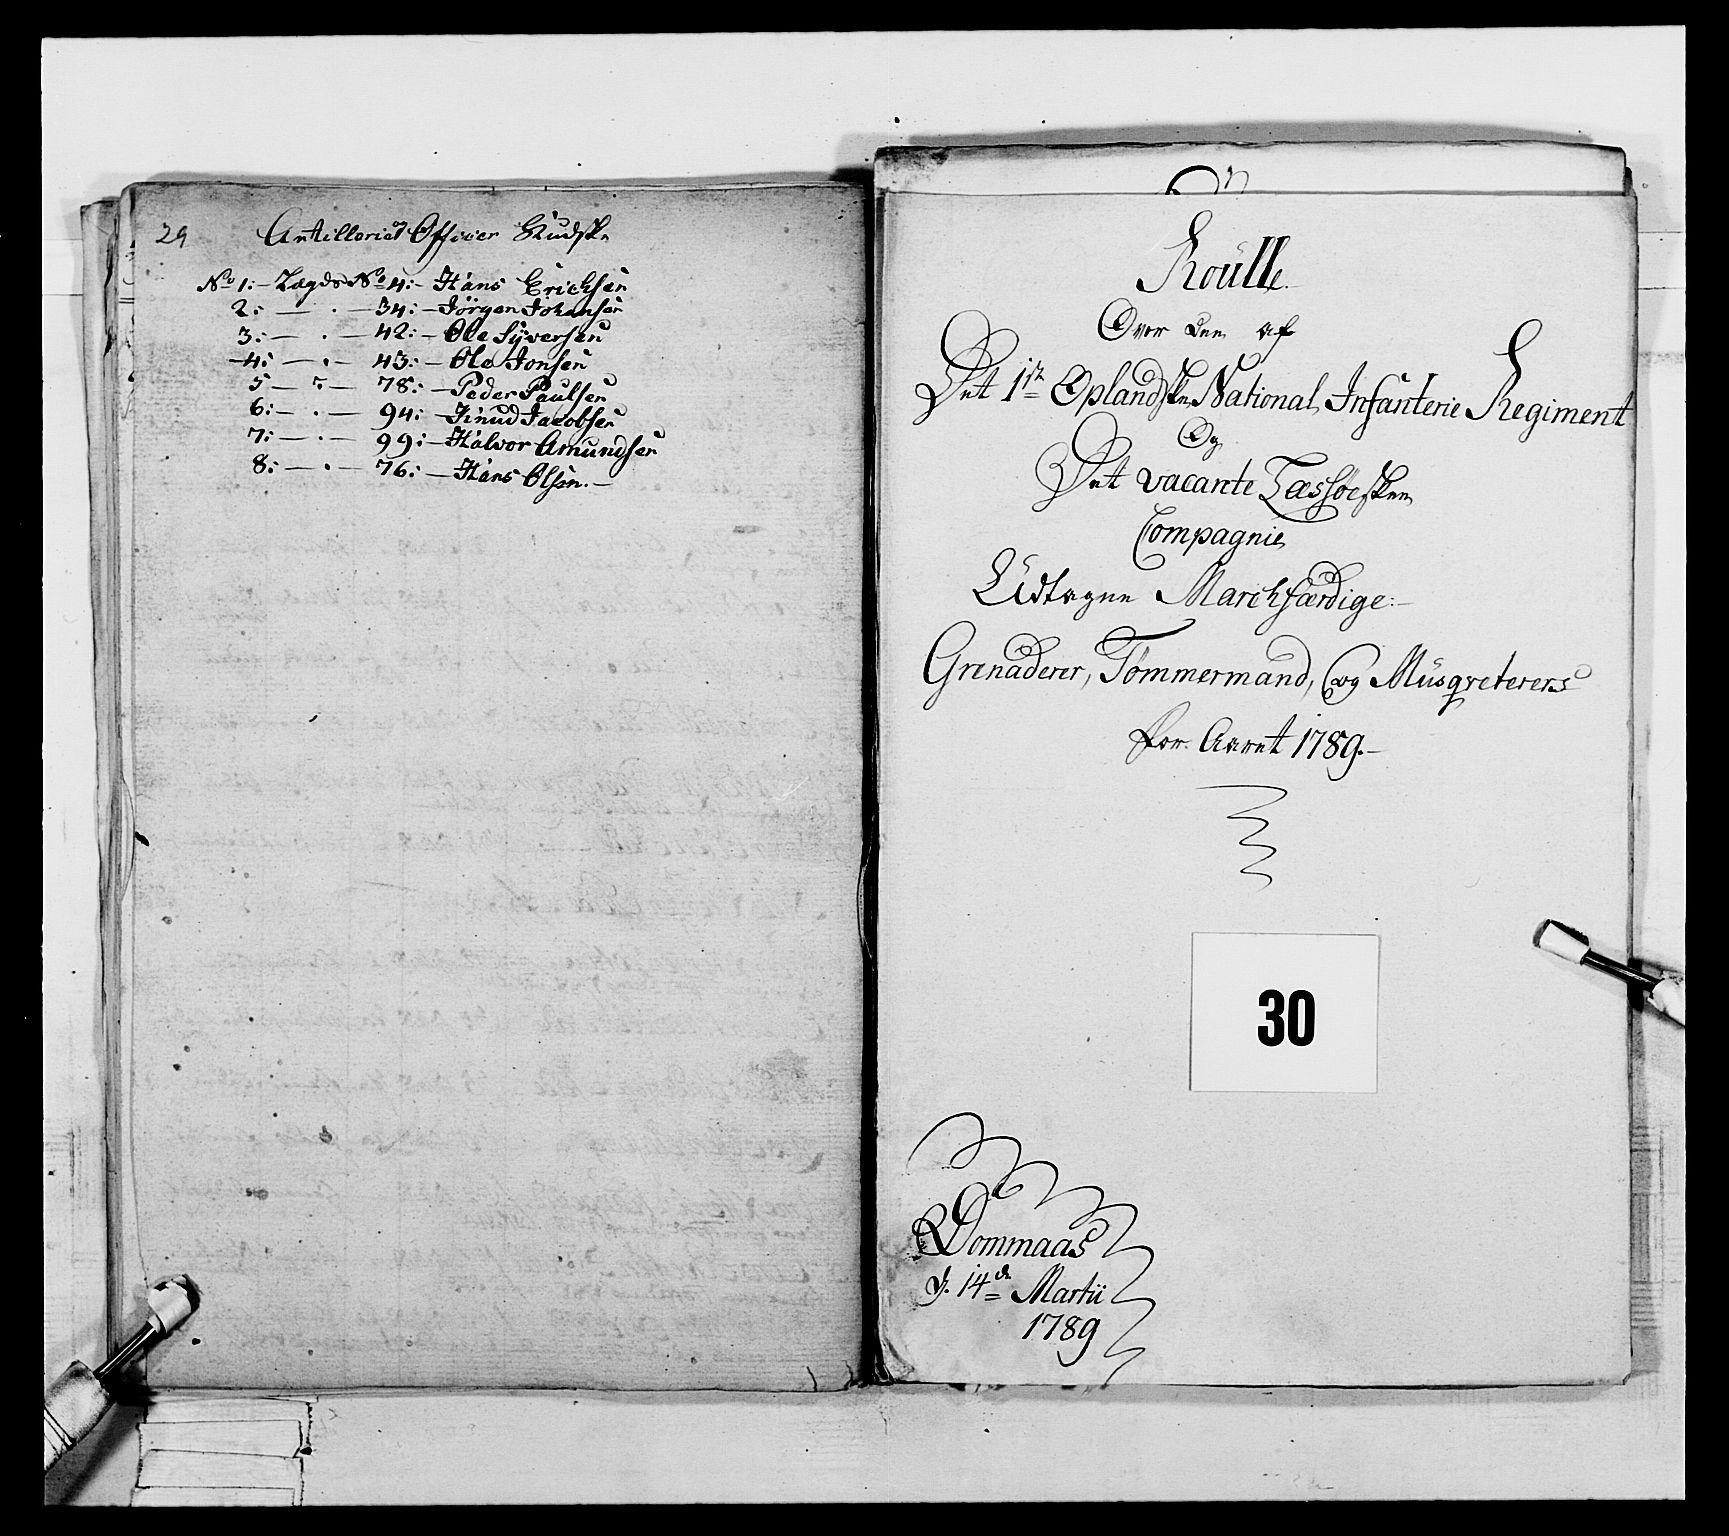 29
Artilleriet Officer
No 1:- Lægds No 4:- Hans Erichsen
2:- - 34:- Jörgen Johansen
3:- - 42:- Ole Syversen
4:- - 43:- Ole Jonsen
5 - - 78:- Peder Paulsen
6:- - 94:- Knud Jacobsen
7:- - 99:- Halvor Amundsen
8:- - 76:- Hans Olsen.-
Roulle
Over de af
Det 1ste Oplandske National Infanterie Regiment
Og
Det vacante Læssöeske
Compagnie
Udtagne Marchfærdige:-
Grenaderer, Tömmermand, og Musqveterers
for Aaret 1789.-
30
Dommaas
d. 14de Martii
1789